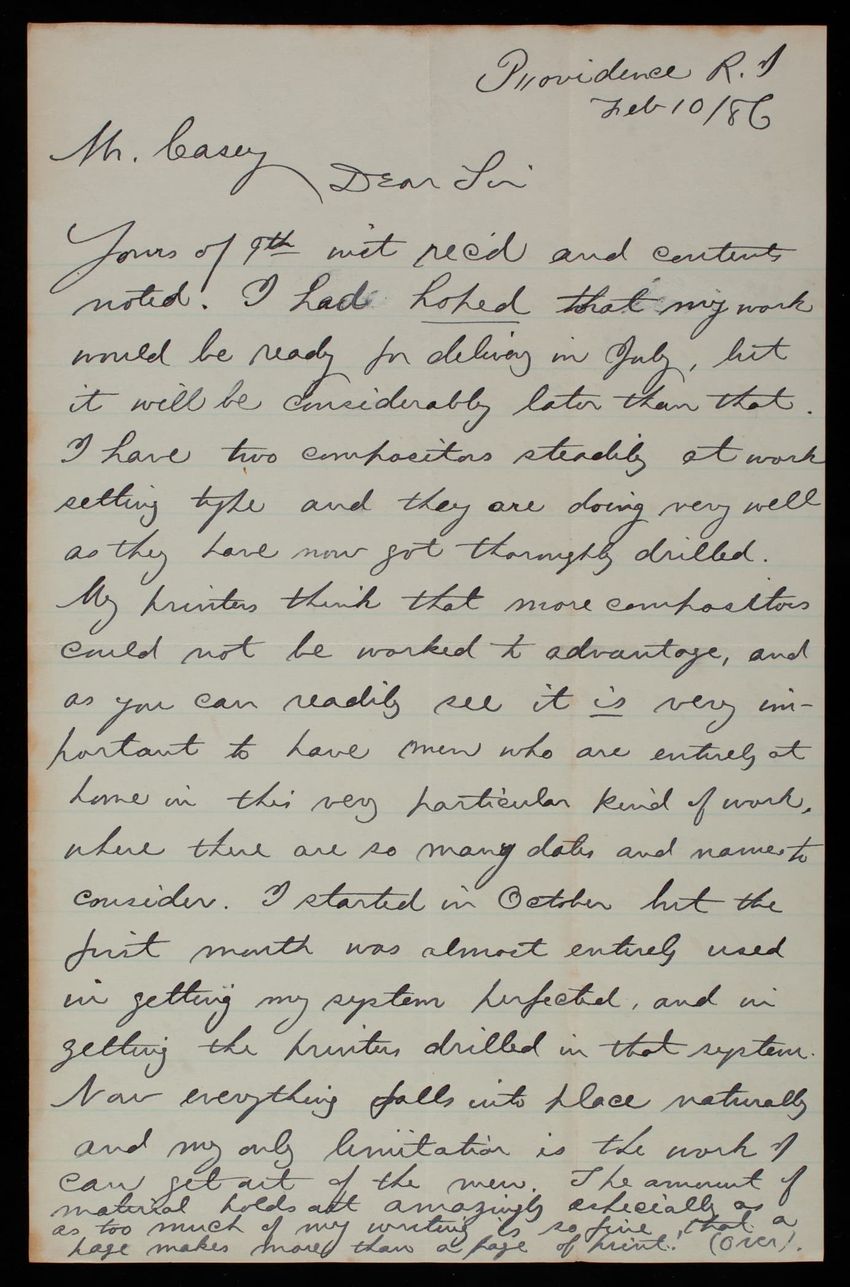 Providence R. I
Feb 10/86
Mr. Casey
Dear Sir
Yours of 9th inst rec'd and contents
noted. I had hoped that my work
would be ready for delivery in July, but
it will be considerably later than that.
I have two compositors steadily at work
setting type and they are doing very well
as they have now got thoroughly drilled.
My printers think that more compositors
could not be worked to advantage, and
as you can readily see it is very im-
portant to have men who are entirely at
home in this very particular kind of work,
where there are so many dates and names to
consider. I started in October but the
first month was almost entirely used
in getting my system perfected, and in
getting the printers drilled in that system.
Now everything falls into place naturally
and my only limitation is the work I
can get out of the men. The amount of
material holds out amazingly especially as
as too much of my writing is so fine that a
page makes more than a page of print! (Over).